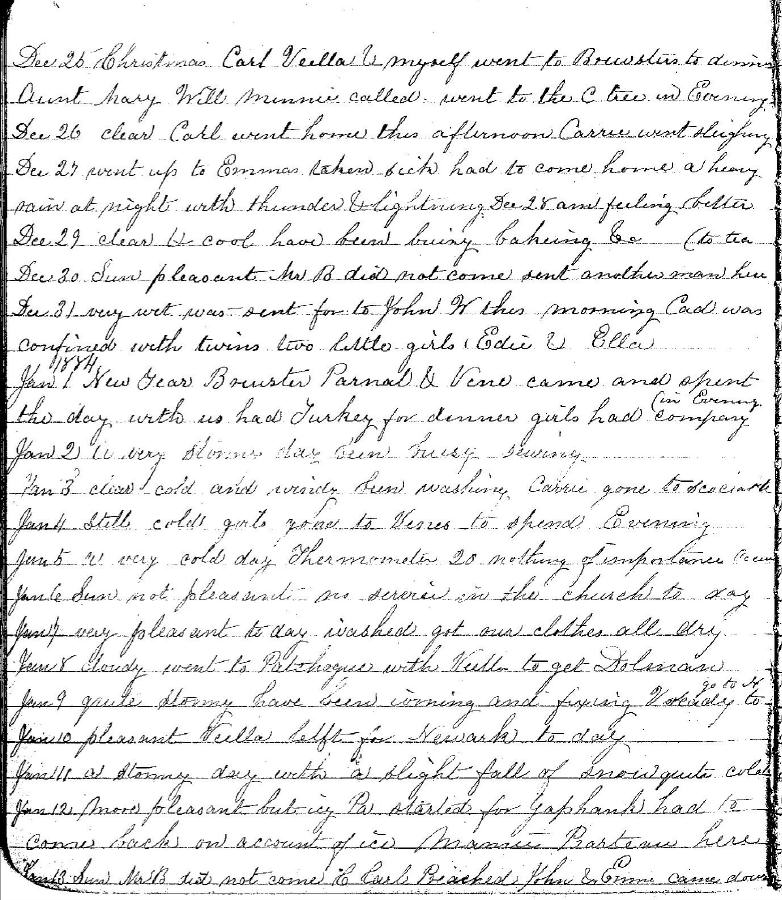 Dec 25 Christmas Carl Veella & myself went to Brewsters to dinner
Aunt Mary Will Minnie called went to the C tree in Evening
Dec 26 clear Carl went home this afternoon Carrie went sleighing
Dec 27 went up to Emmas taken sick had to come home a heavy
rain at night with thunder & lightning Dec 28 am feeling better
Dec 29 clear & cool have been buisy bakeing &c (to tea
Dec 30 Sun pleasant Mr B did not come sent another man here
Dec 31 very wet was sent for to John W this morning Cad was
confined with twins two little girls (Edie & Ella
1884
Jan 1 New Year Brewster Parnal & Vene came and spent
the day with us had Turkey for dinner girls had company (in Evening
Jan 2 a very stormy day been busy sewing
Jan 3 clear cold and windy been washing Carrie gone to
Jan 4 still cold girls gone to Venes to spend Evening
Jan 5 a very cold day Thermometer 20 nothing of importance
Jan 6 Sun not pleasant no service in the church to day
Jan 7 very pleasant to day washed got our clothes all dry
Jan 8 cloudy went to Patchogue with Veella to get Dolman
Jan 9 quite stormy have been ironing and fixing V ready to go to N
Jan 10 pleasant Veella lelft for Newark to day
Jan 11 a stormy day with a slight fall of snow quite cold
Jan 12 More pleasant but icy Pa started for Yaphank had to
come back on account of ice Mamie Barteau here
Jan 13 Sun Mr B did not come H Earl Preached John & Emm came down